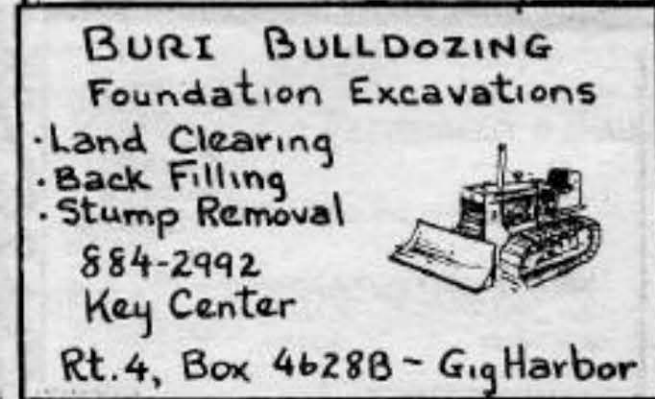 BURI BULLDOZING
Foundation Excavations
· Land Clearing
· Back Filling
· Stump Removal
884-2992
Key Center
Rt. 4, Box 4628B ~ Gig Harbor